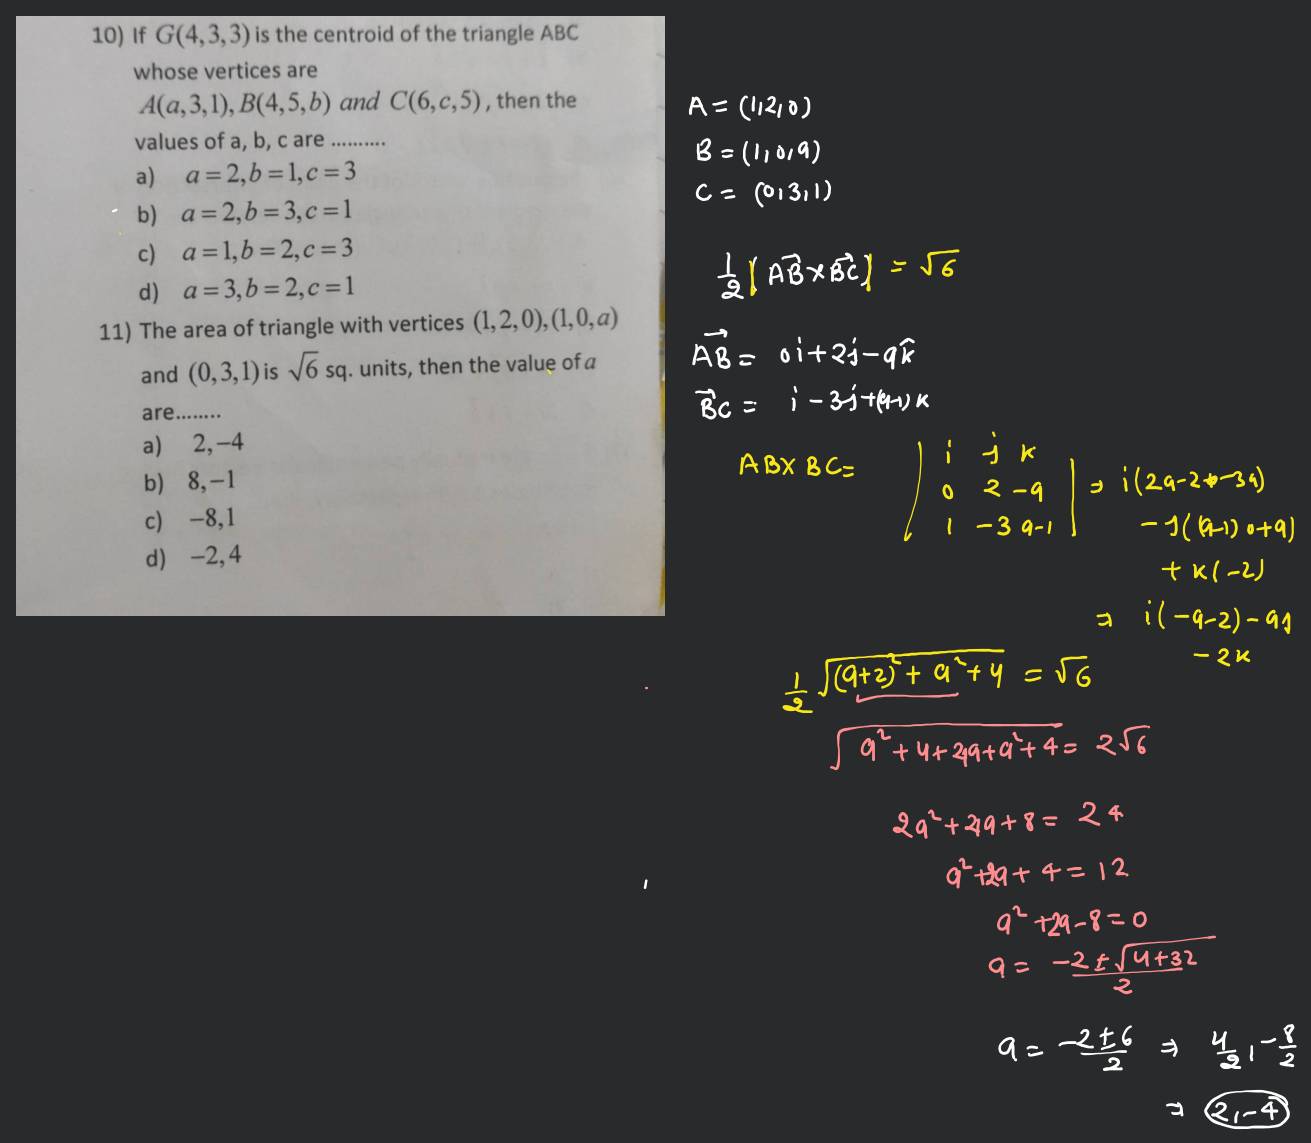 10) If G(4,3,3) is the centroid of the triangle ABC
whose vertices are
A(a,3,1), B(4,5,b) and C(6,c,5), then the
values of a, b, c are ..........
a) a=2,b=1,c=3
b) a=2,b=3,c=1
c) a=1,b=2,c=3
d) a=3,b=2,c=1
11) The area of triangle with vertices (1,2,0),(1,0,a)
and (0,3,1) is √6 sq. units, then the value of a
are........
a) 2,−4
b) 8,−1
c) −8,1
d) −2,4
A = (1,2,0)
B = (1,0,a)
C = (0,3,1)
1/2 |AB⃗ × BC⃗| = √6
AB⃗ = 0i+2j−ak̂
B⃗C = i−3j+(a−1)k
AB×BC= | i j k | 
| 0 2 −a | ⇒ i(2a−2−3a)
| 1 −3 a−1 | −j((a−1)0+a)
+k(−2)
⇒ i(−a−2)−aj
−2k
1/2 √((a+2)²+a²+4) = √6
√(a²+4+4a+a²+4) = 2√6
2a²+4a+8 = 24
a²+2a+4 = 12
a²+2a−8=0
a = (−2±√(4+32))/2
a = (−2±6)/2 ⇒ 4/2, −8/2
⇒ 2,−4